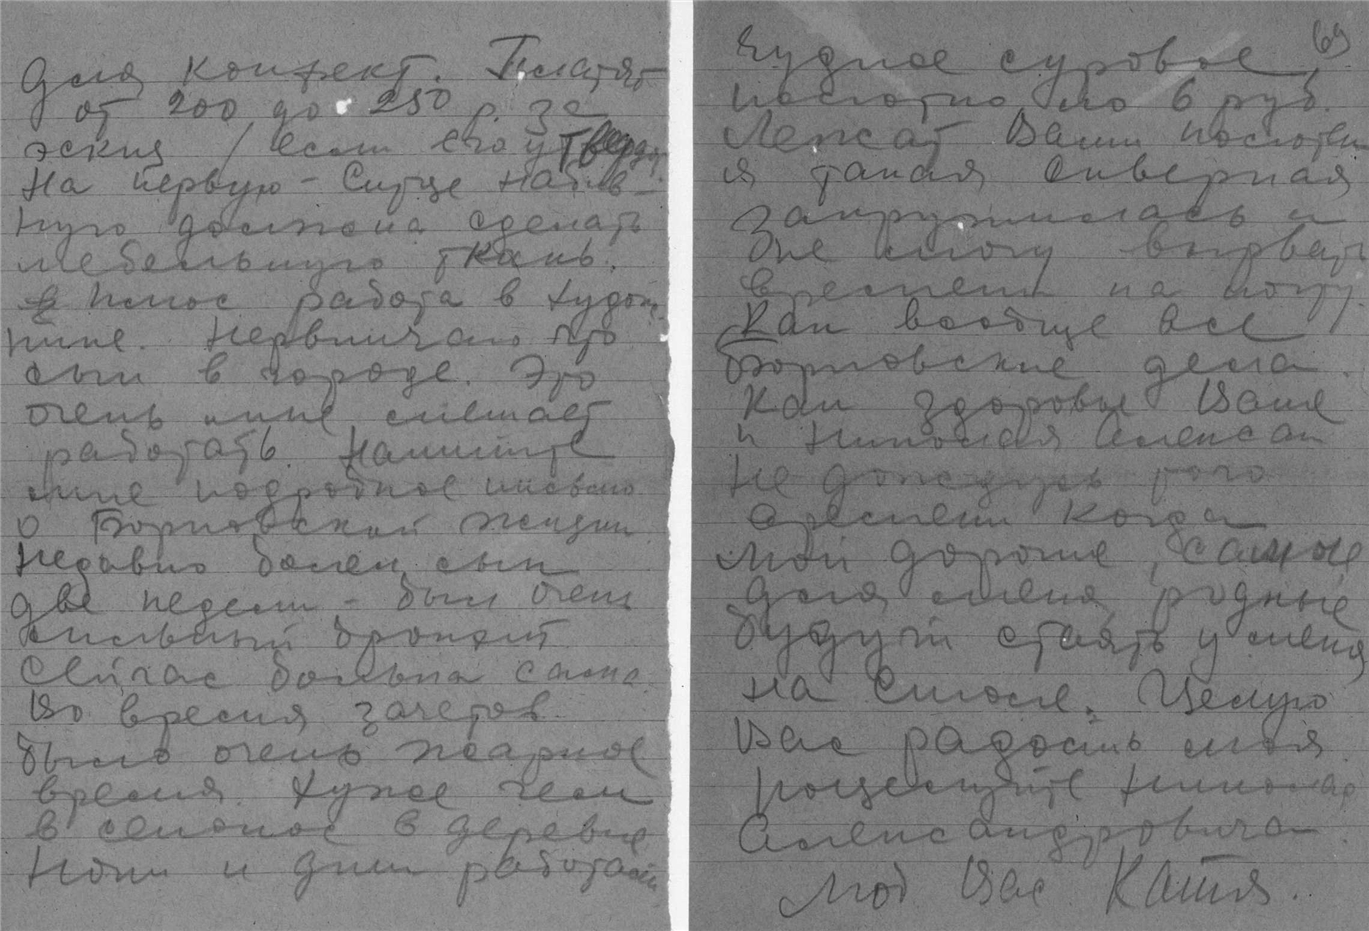 для конфект. Платят
от 200 до 250 р. за
эскиз / если его утвердят
На первую - Ситце набив-
ную должна сделать
мебельную ткань.
в плюс работа в худож
нике. Нервничаю что
сын в городе. Это
очень мне мешает
работать. Напишите
мне подробное письмо
о Боровской жизни.
Недавно болел сын
две недели - был очень
сильный бронхит
Сейчас больна сама.
Во время зачетов
было очень жаркое
время. Хуже чем
в сенокос в деревне
Ночи и дни работали
69
Чудное суровое
полотно по 6 руб.
Лежат Ваши полотен
я такая скверная
закружилась и
не могу вырвать
времени на почту
Как вообще все
Боровские дела.
Как здоровье Ваше
и Николая Алексан
Не дождусь того
времени когда
мои дорогие, самые
для меня родные
будут стоять у меня
на столе. Целую
Вас радость моя
поцелуйте Николая
Александровича
Люб Вас Катя.